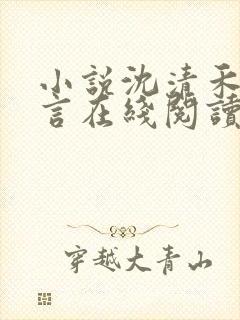 小说沈清禾
言在綫閱讀
穿越大青山